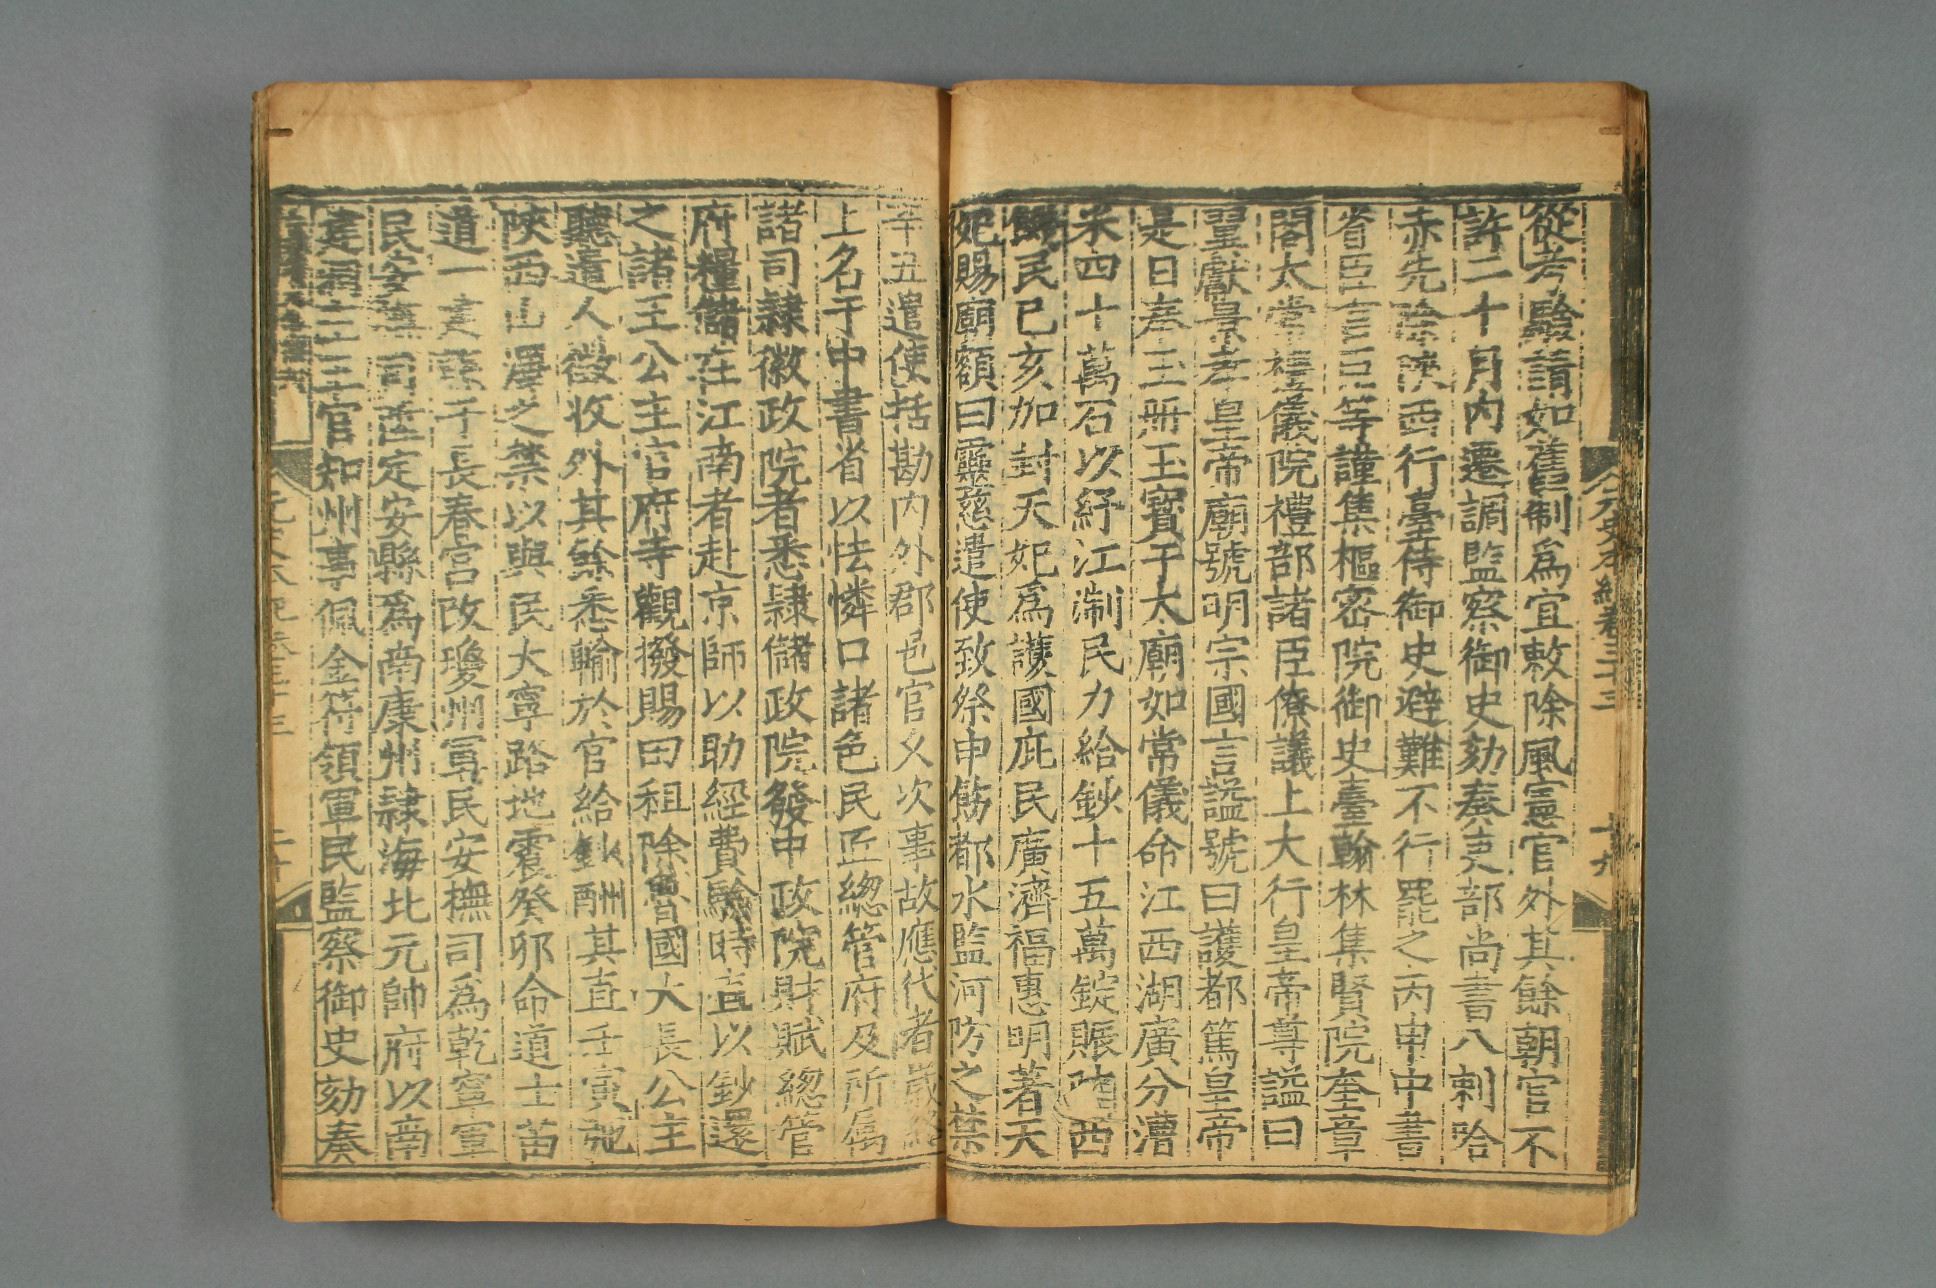 元史本紀卷三十三
十九
從考驗請如舊制爲宜敕除風憲官外其餘朝官不
許二十月內遷調監察御史劾奏吏部尚書八剌哈
赤先除陝西行臺侍御史避難不行罷之丙申中書
省臣言臣等謹集樞密院御史臺翰林集賢院奎章
閣太常禮儀院禮部諸臣僚議上大行皇帝尊謚曰
翼獻景孝皇帝廟號明宗國言謚號曰護都篤皇帝
是日奉玉冊玉寶于太廟如常儀命江西湖廣分漕
米四十萬石以紓江淛民力給鈔十五萬錠賑陝西
饑民己亥加封天妃爲護國庇民廣濟福惠明著天
妃賜廟額曰靈慈遣使致祭申飭都水監河防之禁
辛丑遣使括勘內外郡邑官久次事故應代者歲終
上名于中書省以怯憐口諸色民匠總管府及所屬
諸司隸徽政院者悉隸儲政院發中政院財賦總管
府糧儲在江南者赴京師以助經費驗時直以鈔還
之諸王公主官府寺觀撥賜田租除魯國大長公主
聽遣人徵收外其餘悉輸於官給鈔酬其直壬寅弛
陝西山澤之禁以與民大寧路地震癸卯命道士苗
道一建醮于長春宮改瓊州軍民安撫司爲乾寧軍
民安撫司陞定安縣爲南康州隸海北元帥府以南
建洞主王官知州事佩金符領軍民監察御史劾奏
元史本紀卷三十三
二十